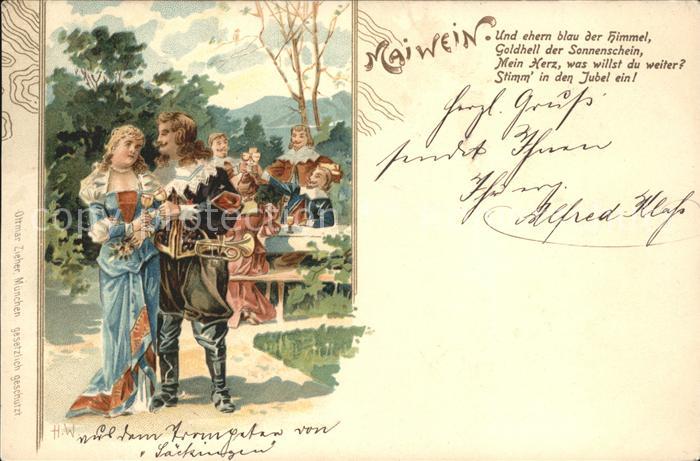 MAIWEIN.
Und ehern blau der Himmel,
Goldhell der Sonnenschein,
Mein Herz, was willst du weiter?
Stimm' in den Jubel ein!
herzl. Gruß
sendet Ihnen
Ihr erg.
Alfred Klaß
Ottmar Zieher, München gesetzlich geschützt
H.W
aus dem Trompeter von
„Säckingen"